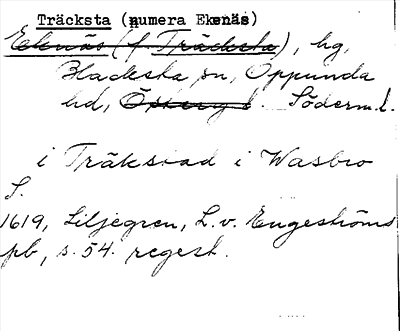 Träcksta (numera Ekenäs)
Ekenäs (f Träcksta), hg,
Blacksta sn, Oppunda
hd, Östergl. Söderm.l.
i Träksstad i Wasbro
S.
1619, Liljegren, L. v. Engeströms
pb, s. 54. regest.